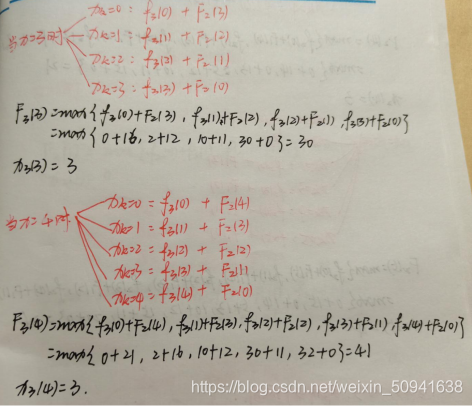 xk=0 : f3(0) + F2(3)
当x=3时 xk=1 : f3(1) + F2(2)
xk=2 : f3(2) + F2(1)
xk=3 : f3(3) + F2(0)
F3(3)=max{f3(0)+F2(3), f3(1)+F2(2), f3(2)+F2(1), f3(3)+F2(0)}
=max{0+16, 2+12, 10+11, 30+0}=30
x3(3)=3
xk=0 = f3(0) + F2(4)
xk=1 = f3(1) + F2(3)
当x=4时 xk=2 = f3(2) + F2(2)
xk=3 = f3(3) + F2(1)
xk=4 = f3(4) + F2(0)
F3(4)=max{f3(0)+F2(4), f3(1)+F2(3), f3(2)+F2(2), f3(3)+F2(1), f3(4)+F2(0)}
=max{0+21, 2+16, 10+12, 30+11, 32+0}=41
x3(4)=3.
https://blog.csdn.net/weixin_50941638